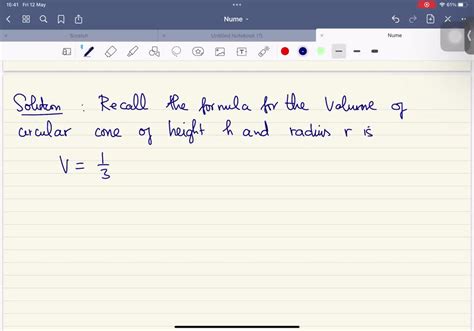 16:41 Fri 12 May
61%
Nume
Scratch
Untitled Notebook (7)
Nume
Solution : Recall the formula for the Volume of
circular cone of height h and radius r is
V = 1/3